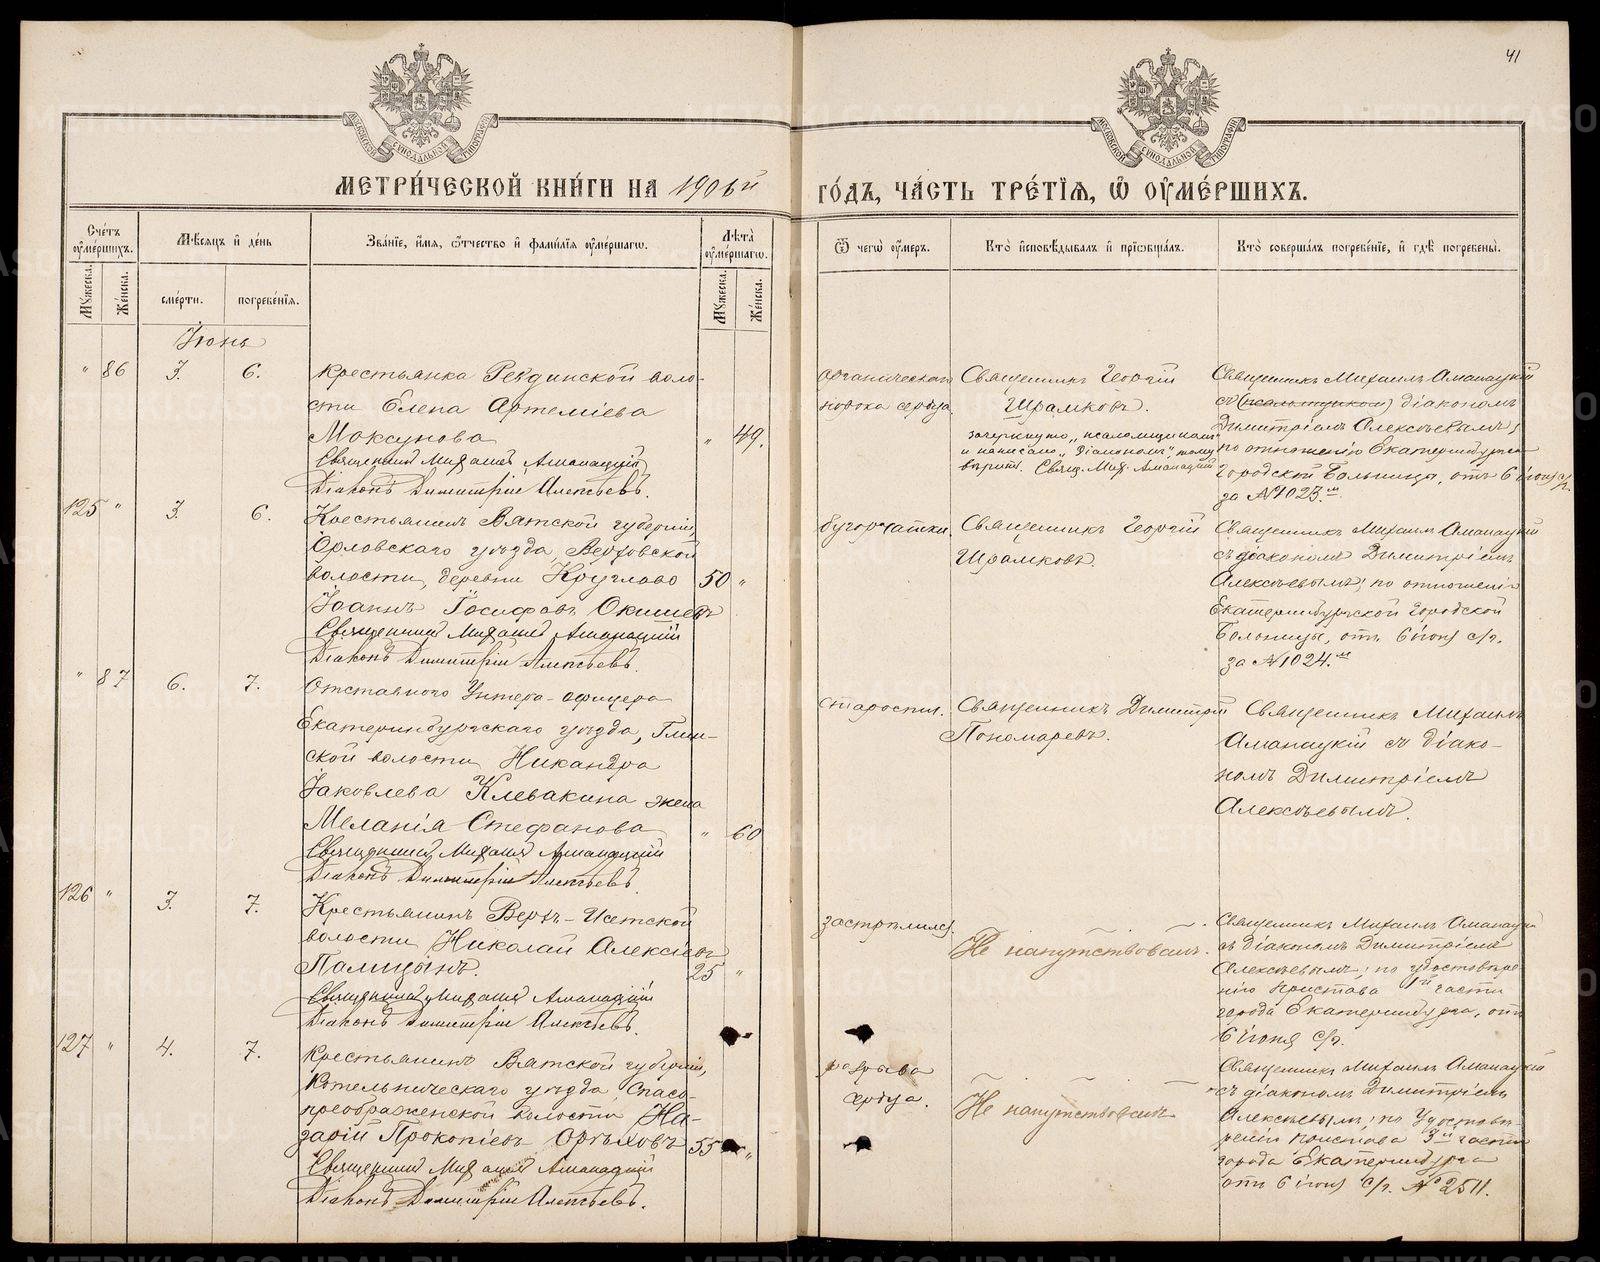 41
МЕТРИ́ЧЕСКОЙ КНИ́ГИ НА 1906й ГО́ДЪ, ЧА́СТЬ ТРЕ́ТІѦ, Ѡ ОУМЕ́РШИХЪ.
Сче́тъ оумéршихъ.
Мѣ́сяцъ и де́нь
Зва́ніе, и́мя, ѻ́тчество и фами́лія оумéршагѡ.
Лѣ́та оумéршагѡ.
Ѿ чегѡ̀ оу́меръ.
Кто̀ исповѣ́дывалъ и пріѡбща́лъ.
Кто̀ соверша́лъ погребе́ніе, и гдѣ̀ погребены̀.
Му́жеска.
Же́нска.
сме́рти.
погребе́нія.
Му́жеска.
Же́нска.
Іюнь
" 86 3. 6.
Крестьянка Ревдинской воло-
сти Елена Артеміева
Моксунова " 49.
Священникъ Михаилъ Аманацкій
Діаконъ Димитрій Алексѣевъ.
органическаго
порока сердца.
Священникъ Георгій
Шрамковъ.
зачеркнуто "псаломщикомъ"
и написано "діакономъ" тому
вѣрить. Свящ. Мих. Аманацкій
Священникъ Михаилъ Аманацкій
съ (псаломщикомъ) діакономъ
Димитріемъ Алексѣевымъ;
по отношенію Екатеринбургск.
Городской Больницы, отъ 6 іюня с/г.
за № 1023.м
125 " 3. 6.
Крестьянинъ Вятской губерніи,
Орловскаго уѣзда, Верховской
волости, деревни Круглово 50 "
Іоаннъ Іосифовъ Окишевъ
Священникъ Михаилъ Аманацкій
Діаконъ Димитрій Алексѣевъ.
бугорчатки.
Священникъ Георгій
Шрамковъ.
Священникъ Михаилъ Аманацкій
съ діакономъ Димитріемъ
Алексѣевымъ; по отношенію
Екатеринбургской Городской
Больницы, отъ 6 іюня с/г.
за № 1024.м
" 87 6. 7.
Отставного Унтеръ-офицера
Екатеринбургскаго уѣзда, Глин-
ской волости Никандра
Іаковлева Клевакина жена
Меланія Стефанова " 60
Священникъ Михаилъ Аманацкій
Діаконъ Димитрій Алексѣевъ.
старости.
Священникъ Димитрій
Пономаревъ.
Священникъ Михаилъ
Аманацкій съ діако-
номъ Димитріемъ
Алексѣевымъ.
126 " 3. 7.
Крестьянинъ Верхъ-Исетской
волости Николай Алексіевъ
Палицынъ. 25 "
Священникъ Михаилъ Аманацкій
Діаконъ Димитрій Алексѣевъ.
застрѣлился.
Не напутствованъ.
Священникъ Михаилъ Аманацкій
съ діакономъ Димитріемъ
Алексѣевымъ; по удостовѣре-
нію Пристава 1й части
города Екатеринбурга, отъ
6 іюня с/г.
127 " 4. 7.
Крестьянинъ Вятской губерніи,
Котельническаго уѣзда, Спасо-
преображенской волости На-
зарій Прокопіевъ Орѣховъ 55 "
Священникъ Михаилъ Аманацкій
Діаконъ Димитрій Алексѣевъ.
разрыва
сердца.
Не напутствованъ
Священникъ Михаилъ Аманацкій
съ діакономъ Димитріемъ
Алексѣевымъ; по Удостовѣ-
ренію Пристава 3й части
города Екатеринбурга
отъ 6 іюня с/г. № 2511.